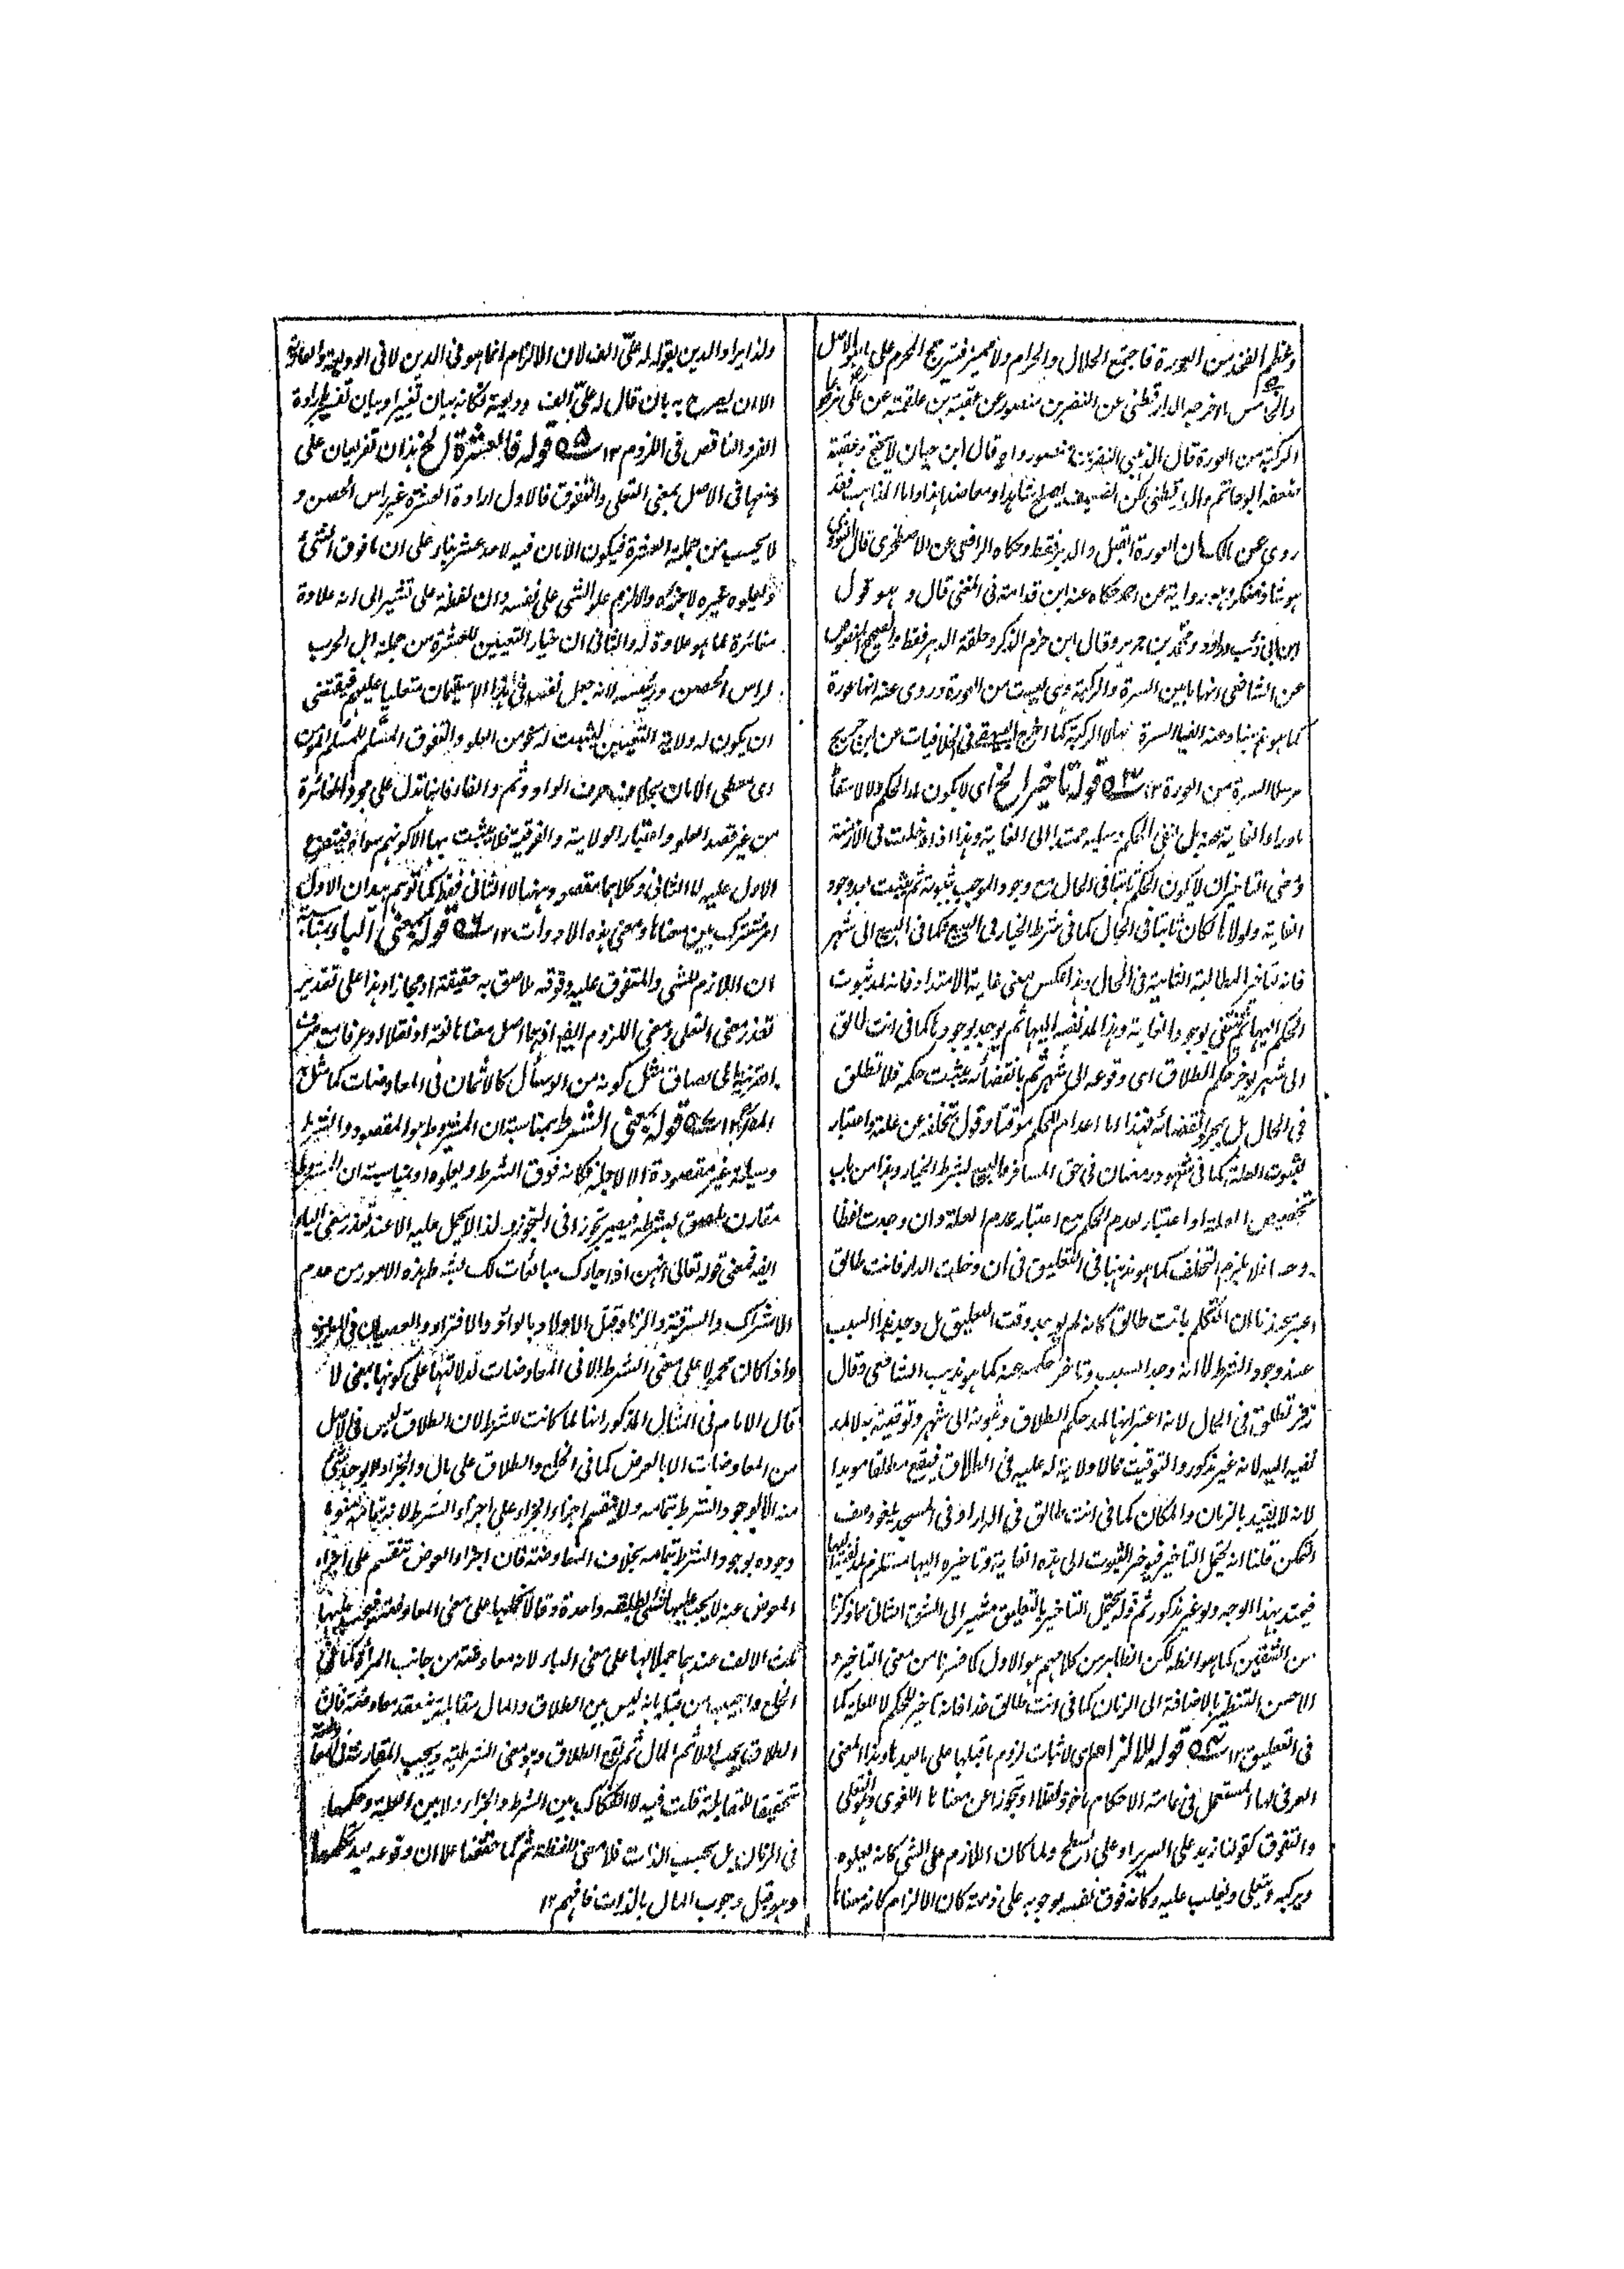 وعظم الفخذ من العورة فاجتمع الحلال والحرام ولا مميز فترجح المحرم على ما هو الاصل
والخامس ما اخرجه الدارقطنى عن النضر بن منصور عن عقبة بن علقمة عن على مرفوعا
الركبة من العورة قال الذهبى النضر بن منصور واه قال ابن حبان لا يحتج وعقبة
ضعفه ابو حاتم والدارقطنى لكن الضعيف يصلح شاهدا ومعاضدا هذا واما المذاهب فقد
روى عن مالك ان العورة القبل والدبر فقط وحكاه الرافعى عن الاصطخرى قال النووى
هو شاذ منكر وهو رواية عن احمد حكاه عنه ابن قدامة فى المغنى قال وهو قول
ابن ابى ذئب وداود ومحمد بن جرير وقال ابن حزم الذكر وحلقة الدبر فقط والصحيح المنصوص
عن الشافعى انها ما بين السرة والركبة وهى ليست من العورة وروى عنه انها عورة
كما هو مذهبنا وعنه ايضا السرة منها لا الركبة كما اخرج البيهقى فى الخلافيات عن ابن جريج
مرسلا السرة من العورة ١٢ قوله تاخير الخ اى لا يكون لمد الحكم ولا لاسقاط
ما وراء الغاية عنه بل لنفى الحكم عليه ممتدا الى الغاية وهذا اذا دخلت فى الازمنة
ومعنى التاخير ان لا يكون الحكم ثابتا فى الحال مع وجود الموجب ثبوته ثم يثبت بعد وجود
الغاية ولولاها لكان ثابتا فى الحال كما فى شرط الخيار فى البيع وكما فى البيع الى شهر
فانه تاخير المطالبة الثابتة فى الحال وهذا عكس معنى غاية الامتداد فانه لمد ثبوت
الحكم اليها ثم ينتفى بوجود الغاية وهذا لمد نفيه اليها ثم يوجد بوجودها كما فى انت طالق
الى شهر يوخر حكم الطلاق اى وقوعه الى شهر ثم بانقضائه يثبت حكمه فلا تطلق
فى الحال بل بعد انقضائه فهذا اما اعدام للحكم موقتا وقول بتخلفه عن علته واعتبار
لثبوت العلة كما فى شهود رمضان فى حق المسافر والبيع بشرط الخيار وهذا من باب
تخصيص العلة او اعتبار لعدم الحكم مع اعتبار عدم العلة وان وجدت لفظا
وحسا فلا يلزم التخلف كما هو مذهبنا فى التعليق فى ان دخلت الدار فانت طالق
اعتبر عندنا ان التكلم بانت طالق كانه لم يوجد وقت التعليق بل وجد هذا السبب
عند وجود الشرط لا انه وجد السبب وتاخر حكمه عنه كما هو مذهب الشافعى وقال
زفر تطلق فى الحال لانه اعتبر انها لمد حكم الطلاق وثبوته الى شهر وتوقيته به لا لمد
نفيه اليه لانه غير مذكور والتوقيت مما لا ولاية له عليه فى الطلاق فيقع مطلقا موبدا
لانه لا يتقيد بالزمان والمكان كما فى انت طالق فى الدار او فى المسجد يلغو وصف
التمكن قلنا انه يحتمل التاخير فيوخر الثبوت الى هذه الغاية وتاخيره اليها مستلزم لمد نفيه اليها
فيمتد بهذا الوجه ولو غير مذكور ثم قوله يحتمل التاخير بالتعليق مشير الى الشق الثانى مما ذكرنا
من الشقين كما هو الظاهر لكن الظاهر من كلامهم هو الاول كما فسرنا من معنى التاخير و
الاحسن التنظير بالاضافة الى الزمان كما فى انت طالق غدا فانه تاخير للحكم لا للعلة كما
فى التعليق ١٢ قوله للالزام اى لاثبات لزوم ما قبلها على ما بعدها وهذا المعنى
العرفى لها المستعمل فى عامة الاحكام ماخوذ نقلا او تجوزا عن معناها اللغوى وهو التعلى
والتفوق كقولنا زيد على السرير او على السطح ولما كان اللازم على الشئ كانه يعلوه
ويركبه ويتعلى ويغلب عليه وكانه فوق نفسه لوجوبه على ذمته كان الالزام كانه معناها
ولذا يراد الدين بقوله له على الف لان الالزام انما هو فى الدين لا فى الوديعة والعارية
الا ان يصرح به بان قال له على الف وديعة فكانه بيان تغيير او بيان تفسير بارادة
الفرد الناقص فى اللزوم ١٢ قوله فالعشرة الخ هذان تفريعان على
معناها فى الاصل بمعنى التعلى والتفوق فالاول ارادة العشرة غير راس الحصن و
لا يحسب من جملة العشرة فيكون الامان فيه لاحد عشر بناء على ان ما فوق الشئ
ويعلوه غيره لا جزءه والا لزم علو الشئ على نفسه وان لفظة على تشير الى انه علاوة
مغائرة لما هو علاوة له والثانى ان خيار التعيين للعشرة من جملة اهل الحرب
لراس الحصن ورئيسه لانه جعل نفسه فى هذا الاستيمان متعليا عليهم فيقتضى
ان يكون له ولاية التعيين ليثبت له نحو من العلو والتفوق المسلم للمسلم المومن
اى معطى الامان بخلاف حرف الواو وثم والفاء فانها تدل على مجرد المغائرة
من غير قصد العلو واعتبار الولاية والفوقية فلا يثبت بها الا كونهم سواه فيتفرع
الاول عليه لا الثانى وكلاهما مقصود ههنا لا الثانى فقط كما توهم بيد ان الاول
امر مشترك بين معناها ومعنى هذه الادوات ١٢ قوله بمعنى الباء بمناسبة
ان اللازم للشئ والمتفوق عليه وفوقه ملاصق به حقيقة او مجازا وهذا على تقدير
تعذر معنى التعلى ومعنى اللزوم ايضا اذ هما اصل معناها لغة او نقلا او عرفا مع صرف
القرينة الى الالصاق مثل كونه من الوسائل كالاثمان فى المعاوضات كما مثل به
المصنف ١٢ قوله بمعنى الشرط بمناسبة ان المشروط هو المقصود والشرط
وسيلة غير مقصودة الا لاجله فكانه فوق الشرط ويعلوه او بمناسبة ان المشروط
مقارن ملصق بشرطه فيصير تجوزا فى التجوز ولذا لا يحمل عليه الا عند تعذر معنى الباء
ايضا فمعنى قوله تعالى انهن اذا جاءك مبايعات لك بشرط هذه الامور من عدم
الاشراك والسرقة والزنا وقتل الاولاد بالوائد والافتراء والعصيان فى المعروف
واذا كانت محمولا على معنى الشرط الا فى المعاوضات لدلالتها على كونها بمعنى لا
قال الامام فى المثال المذكور انها لما كانت للشرط لان الطلاق ليس فى الاصل
من المعاوضات الا بالعرض كما فى الخلع والطلاق على مال والجزاء لا يوجد شئ
منه الا بوجود الشرط بتمامه ولا ينقسم اجزاء الجزاء على اجزاء الشرط لانه بتمامه
وجوده بوجود الشرط بتمامه بخلاف المعاوضة فان اجزاء العوض تنقسم على اجزاء
المعوض عنه لا يجب عليها شئ بطلاقه واحدة وقالا بحملها على معنى المعاوضة فيجب عليها
ثلث الالف عندهما حملا لها على معنى الباء لانه معاوضة من جانب المرأة كما فى
الخلع واجيب من قبله بانه ليس بين الطلاق والمال مقابلة ينعقد معاوضة فان
الطلاق يجب اولا ثم المال ثم يقع الطلاق وهو معنى الشرطية ويجب المقارنة فى المعاوضة
تحقيقا للمقابلة قلت فيه لا انفكاك بين الشرط والجزاء ولا بين العلة وحكمها
فى الزمان بل بحسب الذات فلا معنى للفظة ثم كما حققنا علا ان وقوعه بعد تكلمها
وهو قبل وجوب المال بالذات فافهم ١٢